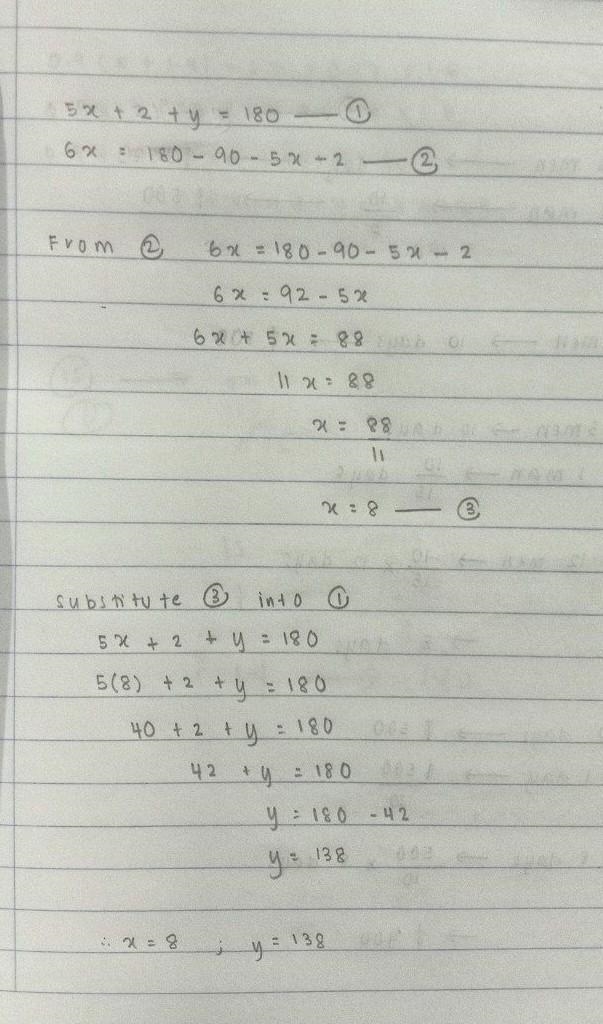 5x + 2 + y = 180 — ①
6x = 180 - 90 - 5x - 2 — ②
From ② 6x = 180 - 90 - 5x - 2
6x = 92 - 5x
6x + 5x = 88
11x = 88
x = 88
11
x = 8 — ③
substitute ③ into ①
5x + 2 + y = 180
5(8) + 2 + y = 180
40 + 2 + y = 180
42 + y = 180
y = 180 - 42
y = 138
∴ x = 8 ; y = 138